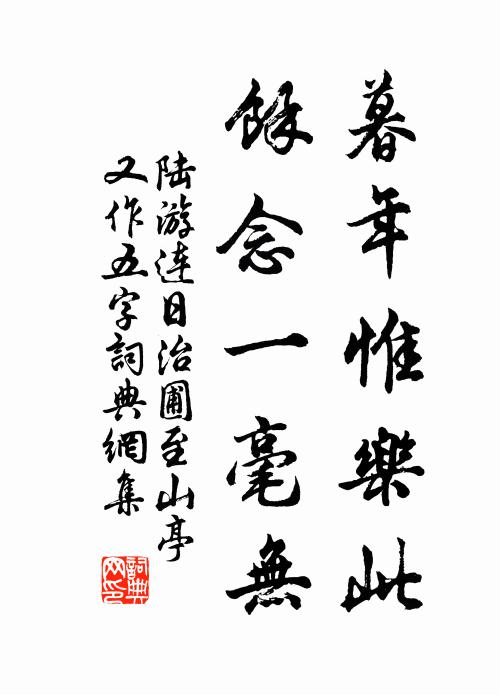 暮年惟樂此
餘念一毫無
陆游连日治圃至山亭
又作五字詞典網集
詞典网印